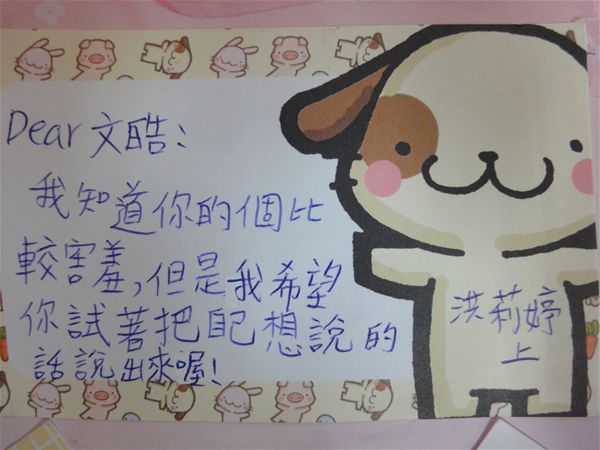 Dear 文皓：
我知道你的個比
較害羞,但是我希望
你試著把自己想說的
話說出來喔!
洪莉婷
上